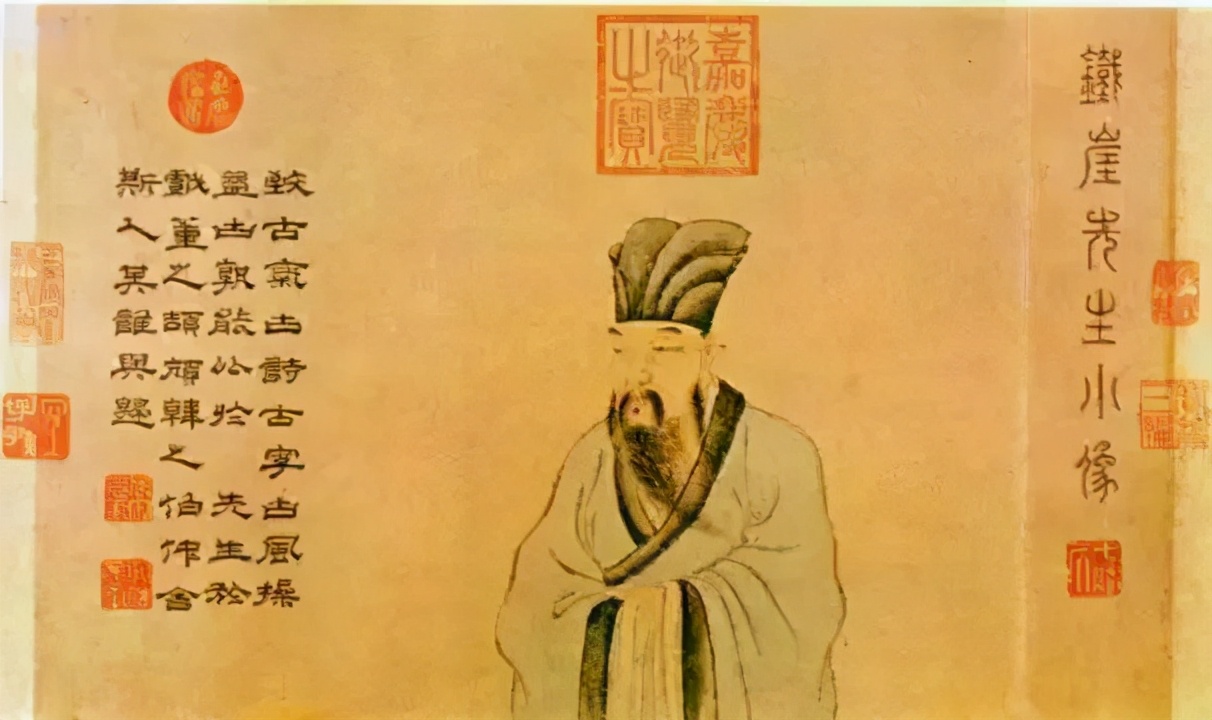 鐵崖先生小像
嘉慶御覽之寶
古氣古詩古字古風操
益古孰能於先生於
戲董之頡頏韓之伯仲舍
斯人其誰與歸